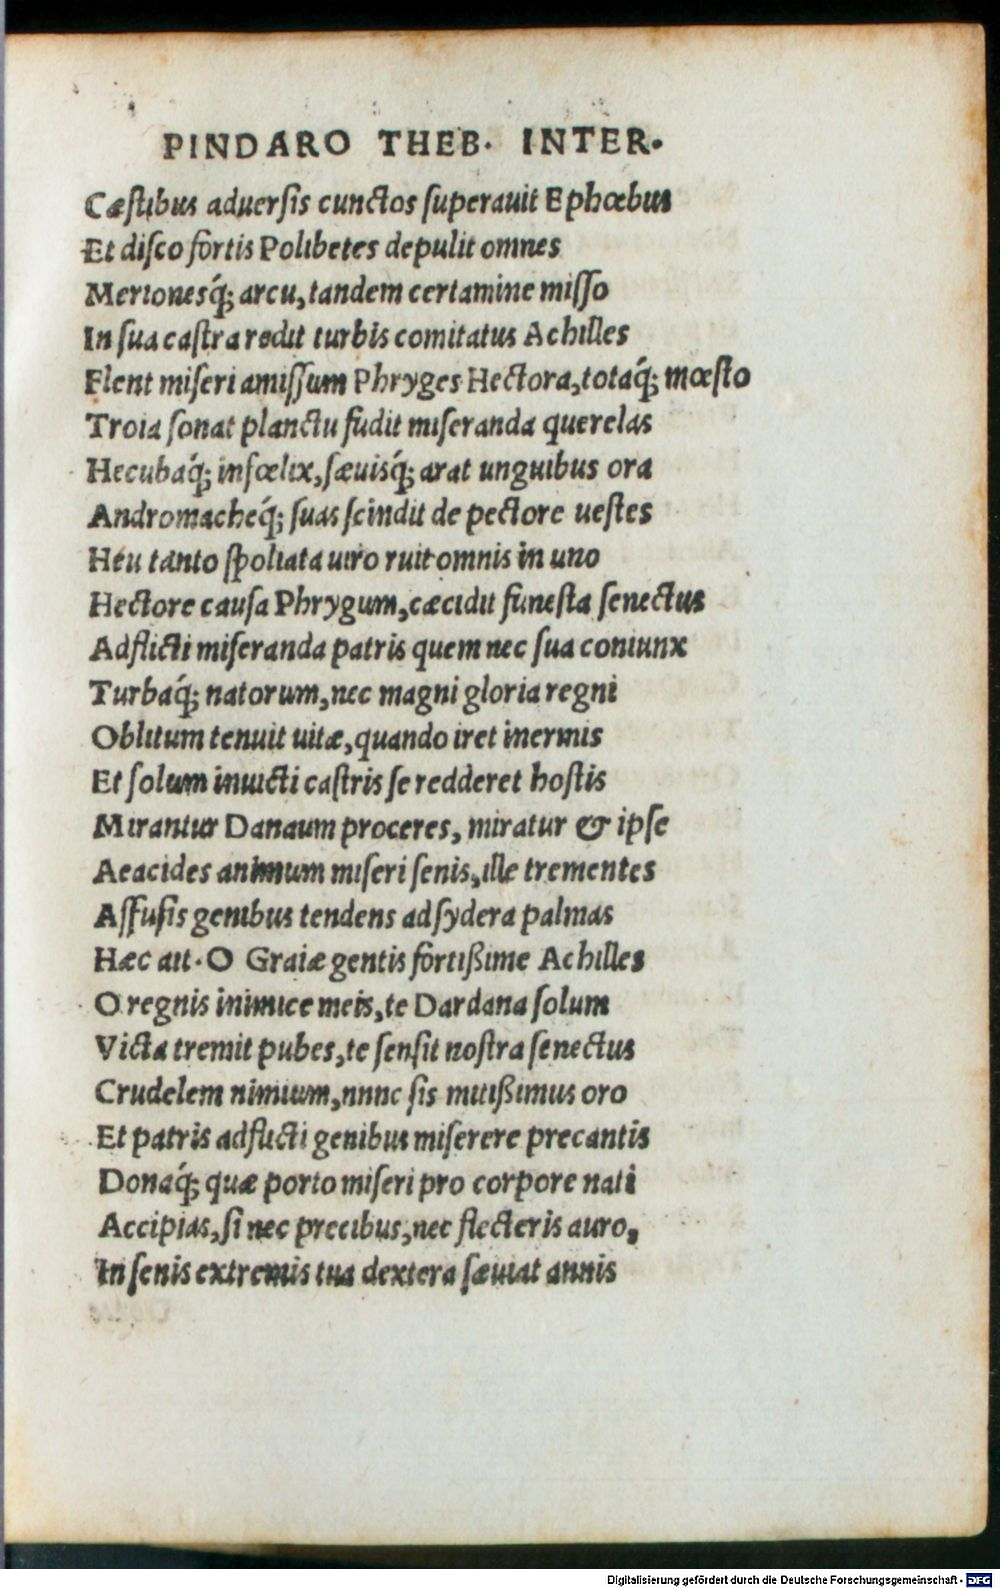 PINDARO THEB. INTER.
Cæstibus aduersis cunctos superauit Ephœbus
Et disco fortis Polibetes depulit omnes
Merionesq́; arcu, tandem certamine misso
In sua castra redit turbis comitatus Achilles
Flent miseri amissum Phryges Hectora, totaq́; mœsto
Troia sonat planctu fudit miseranda querelas
Hecubaq́; infœlix, sæuisq́; arat unguibus ora
Andromacheq́; suas scindit de pectore uestes
Heu tanto spoliata uiro ruit omnis in uno
Hectore causa Phrygum, cæcidit funesta senectus
Adflicti miseranda patris quem nec sua coniunx
Turbaq́; natorum, nec magni gloria regni
Oblitum tenuit uitæ, quando iret inermis
Et solum inuicti castris se redderet hostis
Mirantur Danaum proceres, miratur & ipse
Aeacides animum miseri senis, ille trementes
Affusis genibus tendens ad sydera palmas
Hæc ait. O Graiæ gentis fortißime Achilles
O regnis inimice meis, te Dardana solum
Victa tremit pubes, te sensit nostra senectus
Crudelem nimium, nnnc sis mitißimus oro
Et patris adflicti genibus miserere precantis
Donaq́; quæ porto miseri pro corpore nati
Accipias, si nec precibus, nec flecteris auro,
In senis extremis tua dextera sæuiat annis
Digitalisierung gefördert durch die Deutsche Forschungsgemeinschaft - DFG